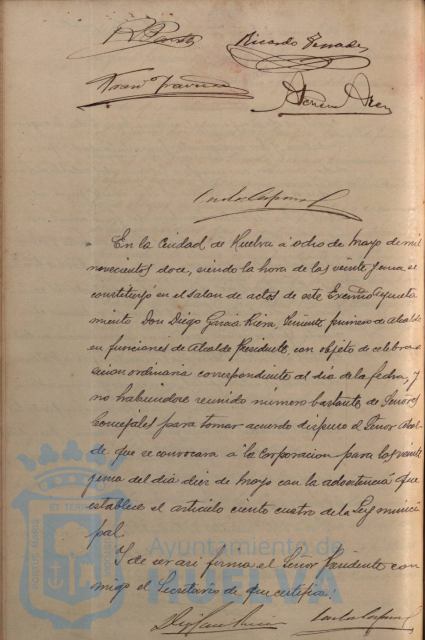 Ricardo Terrades
En la Ciudad de Huelva á ocho de mayo de mil
novecientos doce, siendo la hora de las veinte y una se
constituyó en el salon de actos de este Excmo Ayunta
miento Don Diego Garcia Riera, Teniente primero de Alcalde
en funciones de Alcalde Presidente, con objeto de celebrar se
sion ordinaria correspondiente al dia de la fecha, y
no habiendose reunido número bastante de Señores
Concejales para tomar acuerdo dispuso el Señor Alcal-
de que se convocara á la Corporacion para las veinte
y una del dia diez de mayo con la advertencia que
establece el articulo ciento cuatro de la Ley munici
pal.
Y de ser asi firma el Señor Presidente con
migo el Secretario de que certifico:
Ayuntamiento de
HUELVA